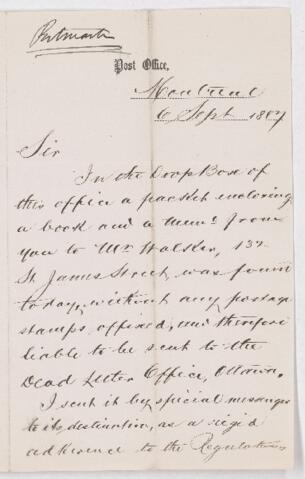 Postmaster
Post Office,
Montreal
6 Sept 1887
Sir
In the Drop Box of
this office a packet enclosing
a book and a Mem: from
you to Mr Walker, 132
St James Street was found
today, without any postage
stamps affixed, and therefore
liable to be sent to the
Dead Letter Office, Ottawa.
I sent it by special messenger
to its destination, as a rigid
adherence to the Regulations